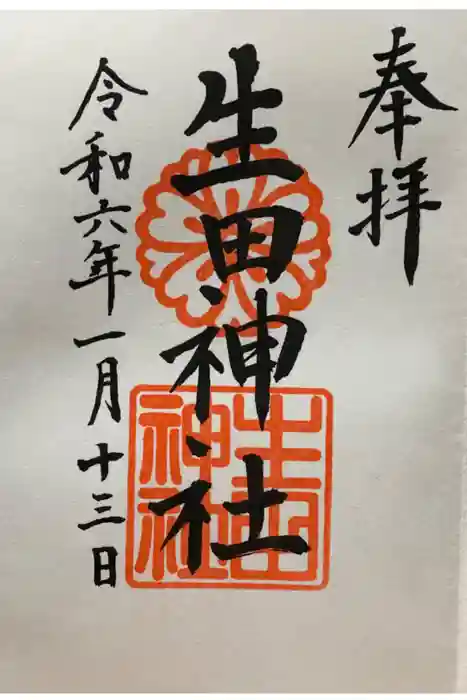 奉拝
生田神社
生田神社
令和六年一月十三日